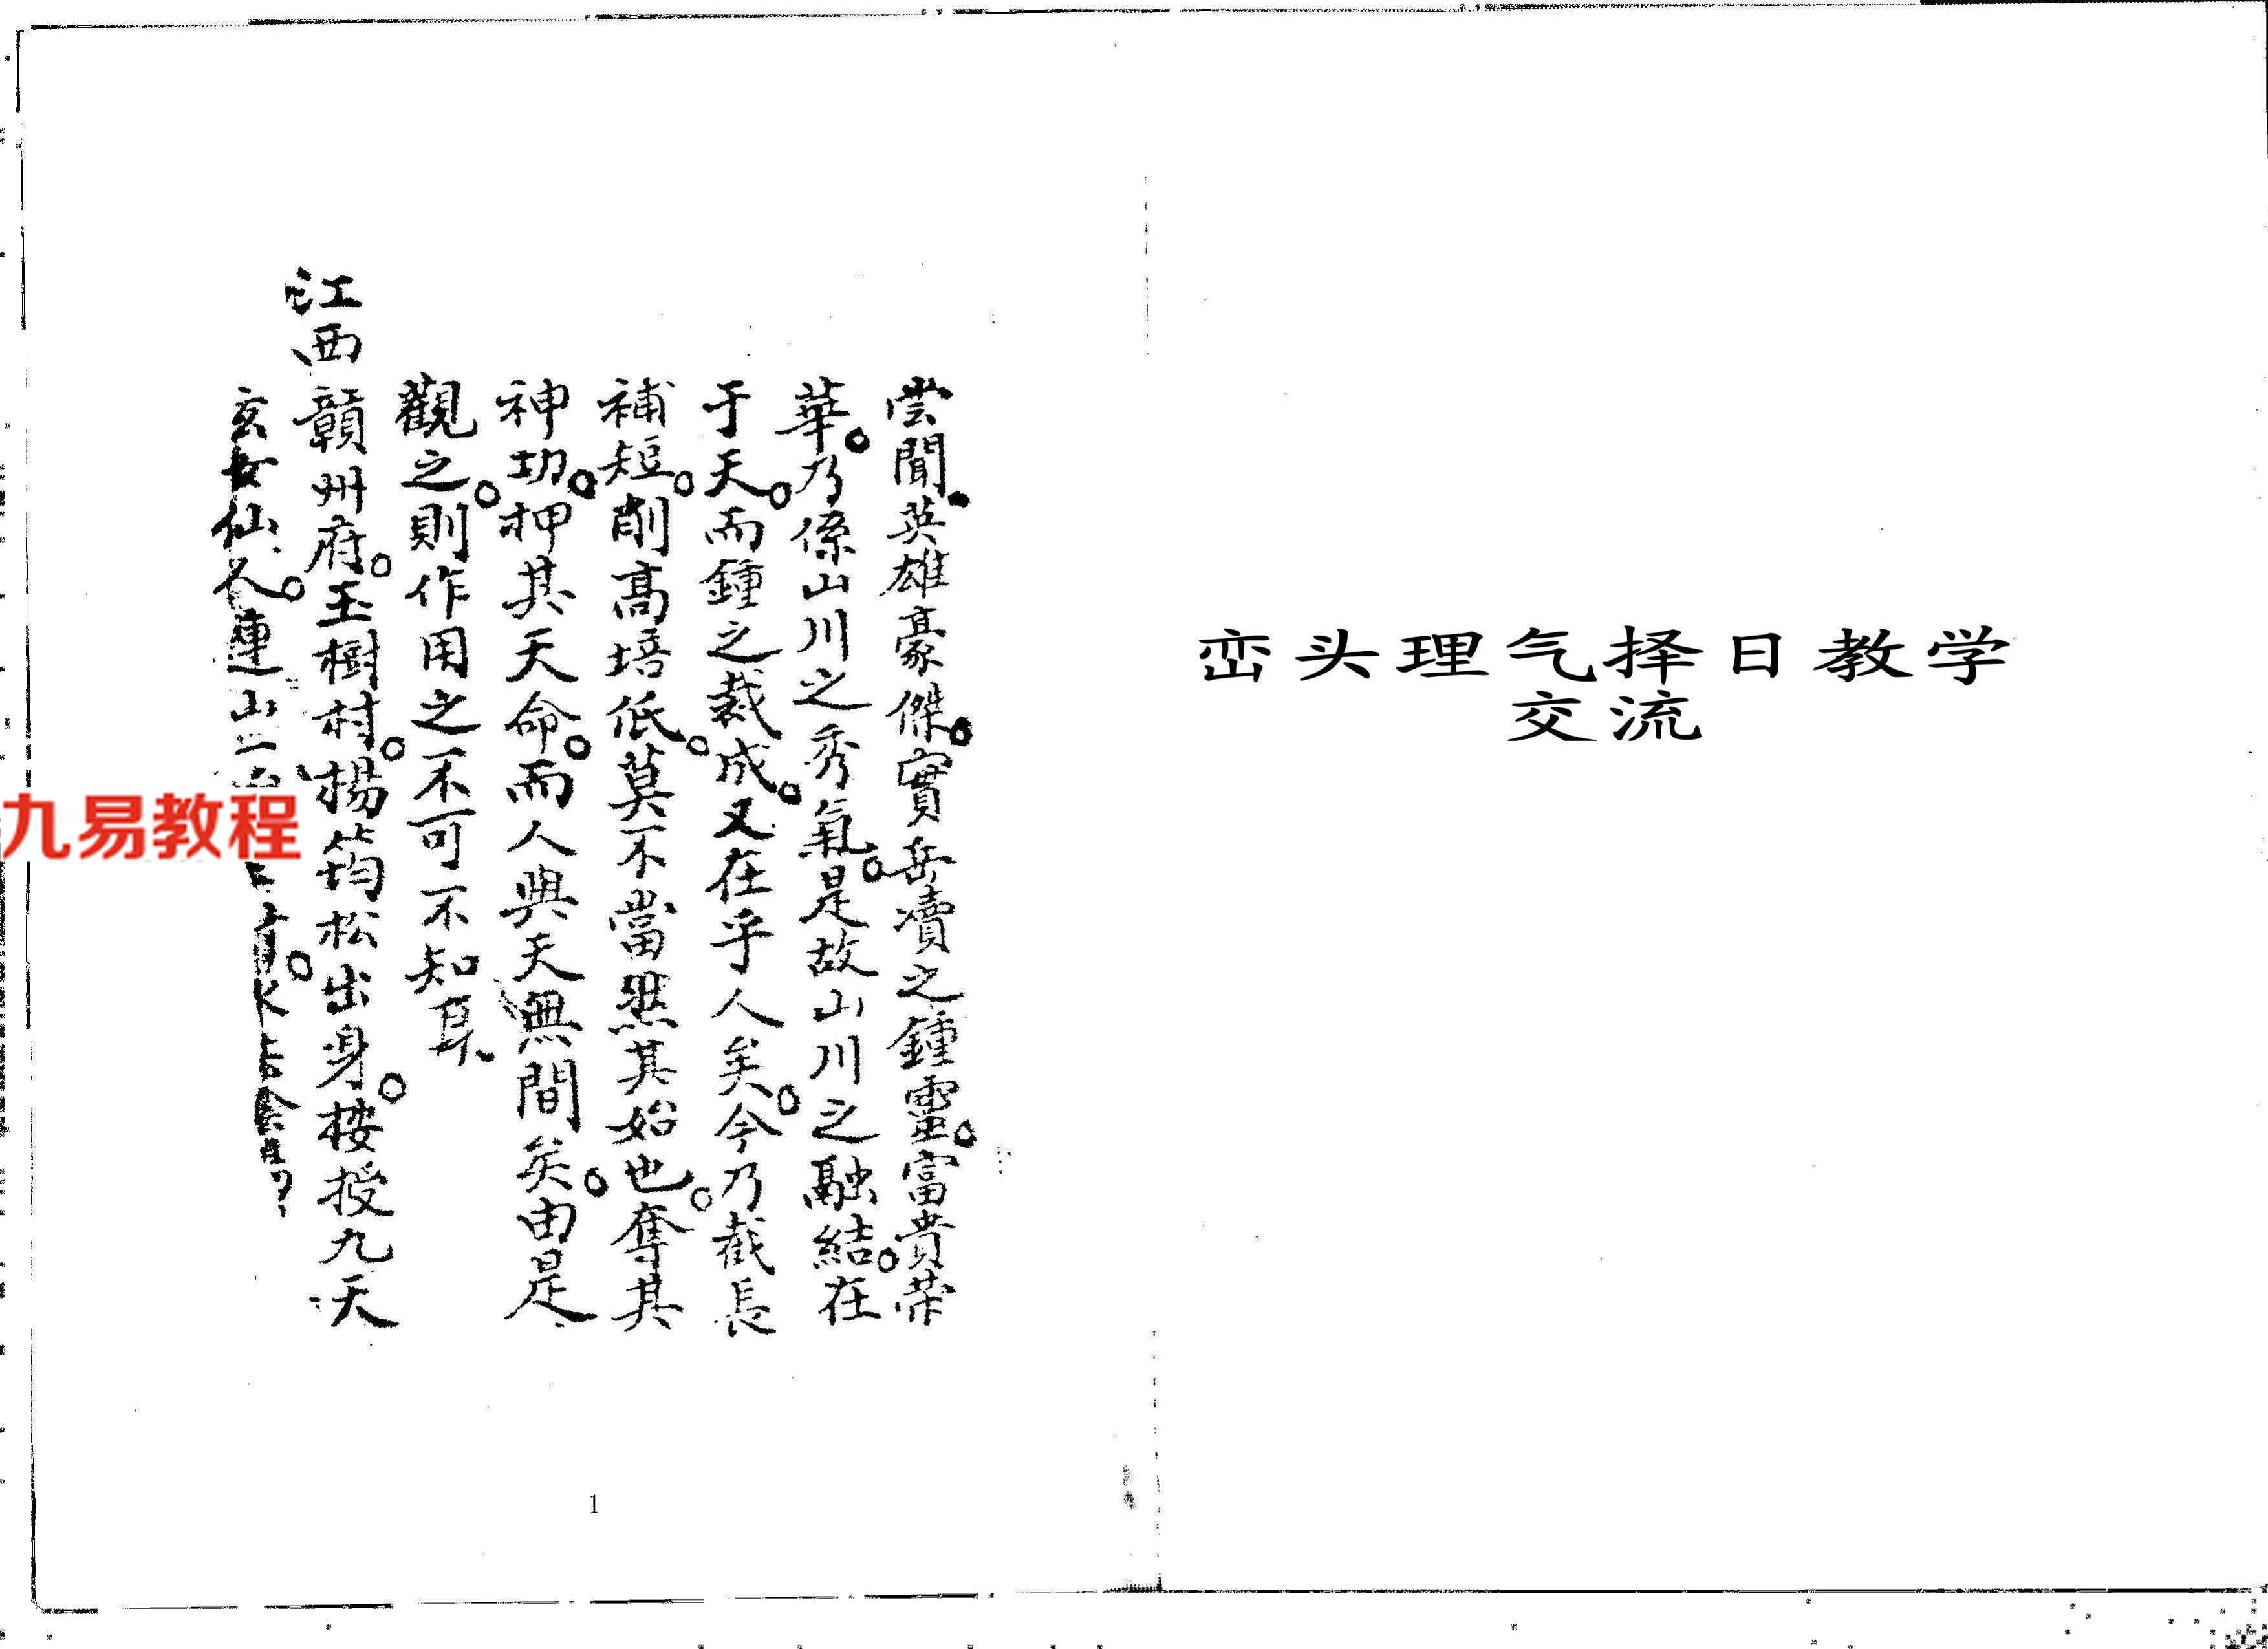 峦头理气择日教学
交流
尝聞英雄豪傑。實岳瀆之鍾靈。富貴荣
華。乃係山川之秀氣。是故山川之融結。在
于天。而鍾之裁成。又在乎人矣。今乃截長
補短。削高培低。莫不當然其始也。奪其
神功。押其天命。而人與天無間矣。由是
觀之。則作用之不可不知耳
江西贛州府。玉樹村。楊筠松出身。接授九天
玄女仙人。連山二
九易教程
1